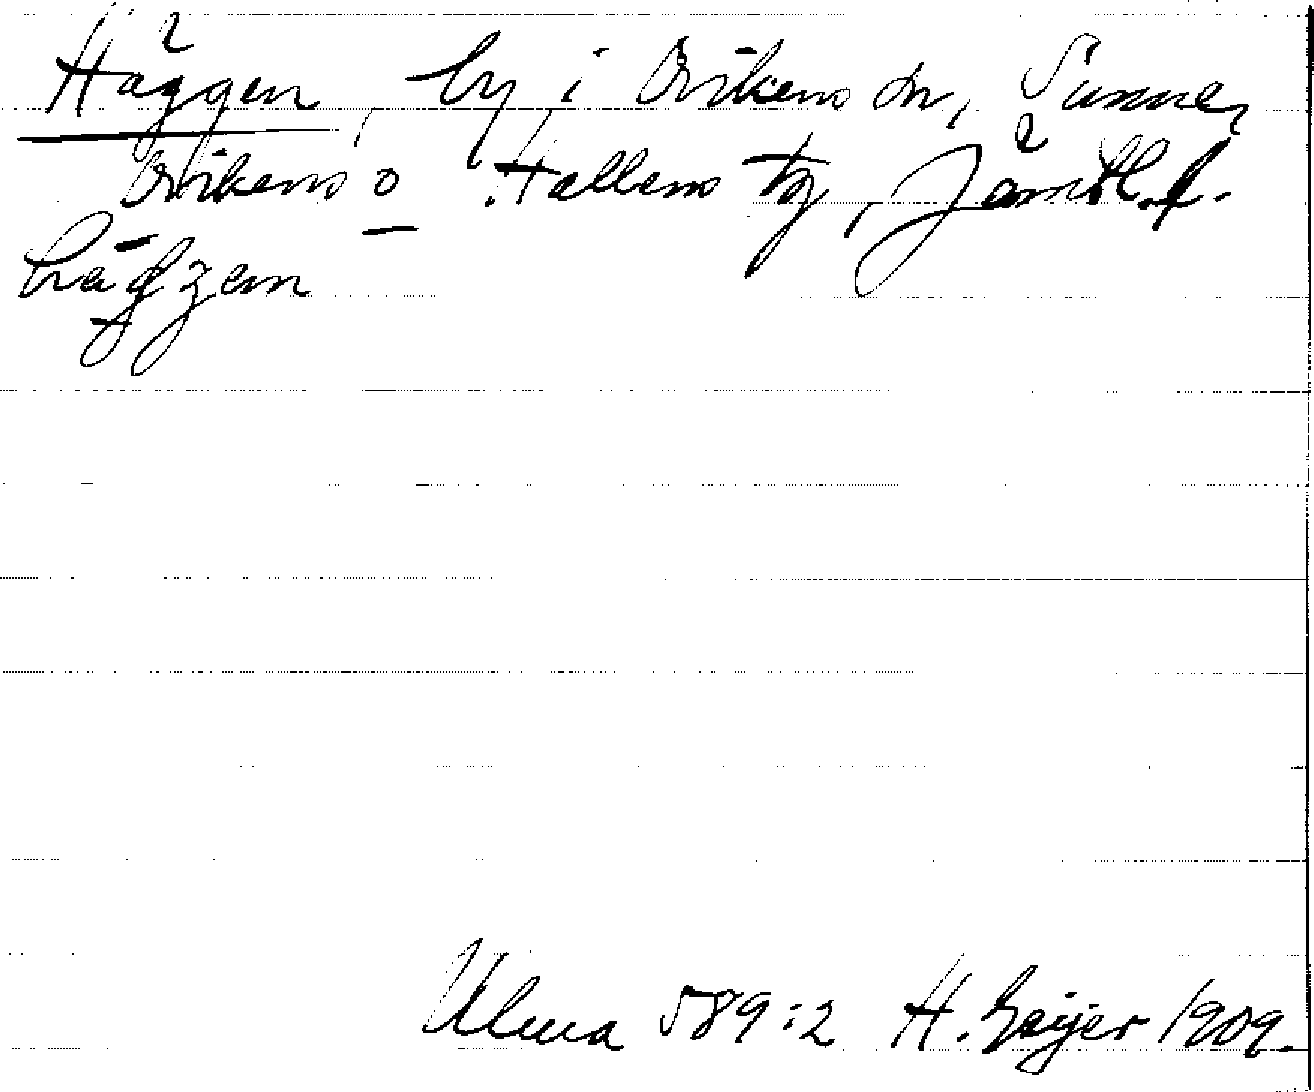 Häggen, by i Ovikens sn, Sunne,
Ovikens o Hallens tg, Jämtl.l.
hägg̵en
Ulma 589:2 H. Geijer 1909.